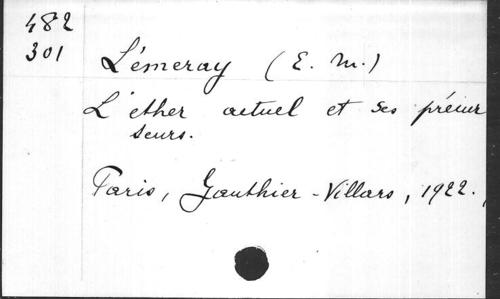 482
301
Lémeray (E. M.)
L'ether actuel et ses précur
seurs.
Paris, Gauthier-Villars, 1922.